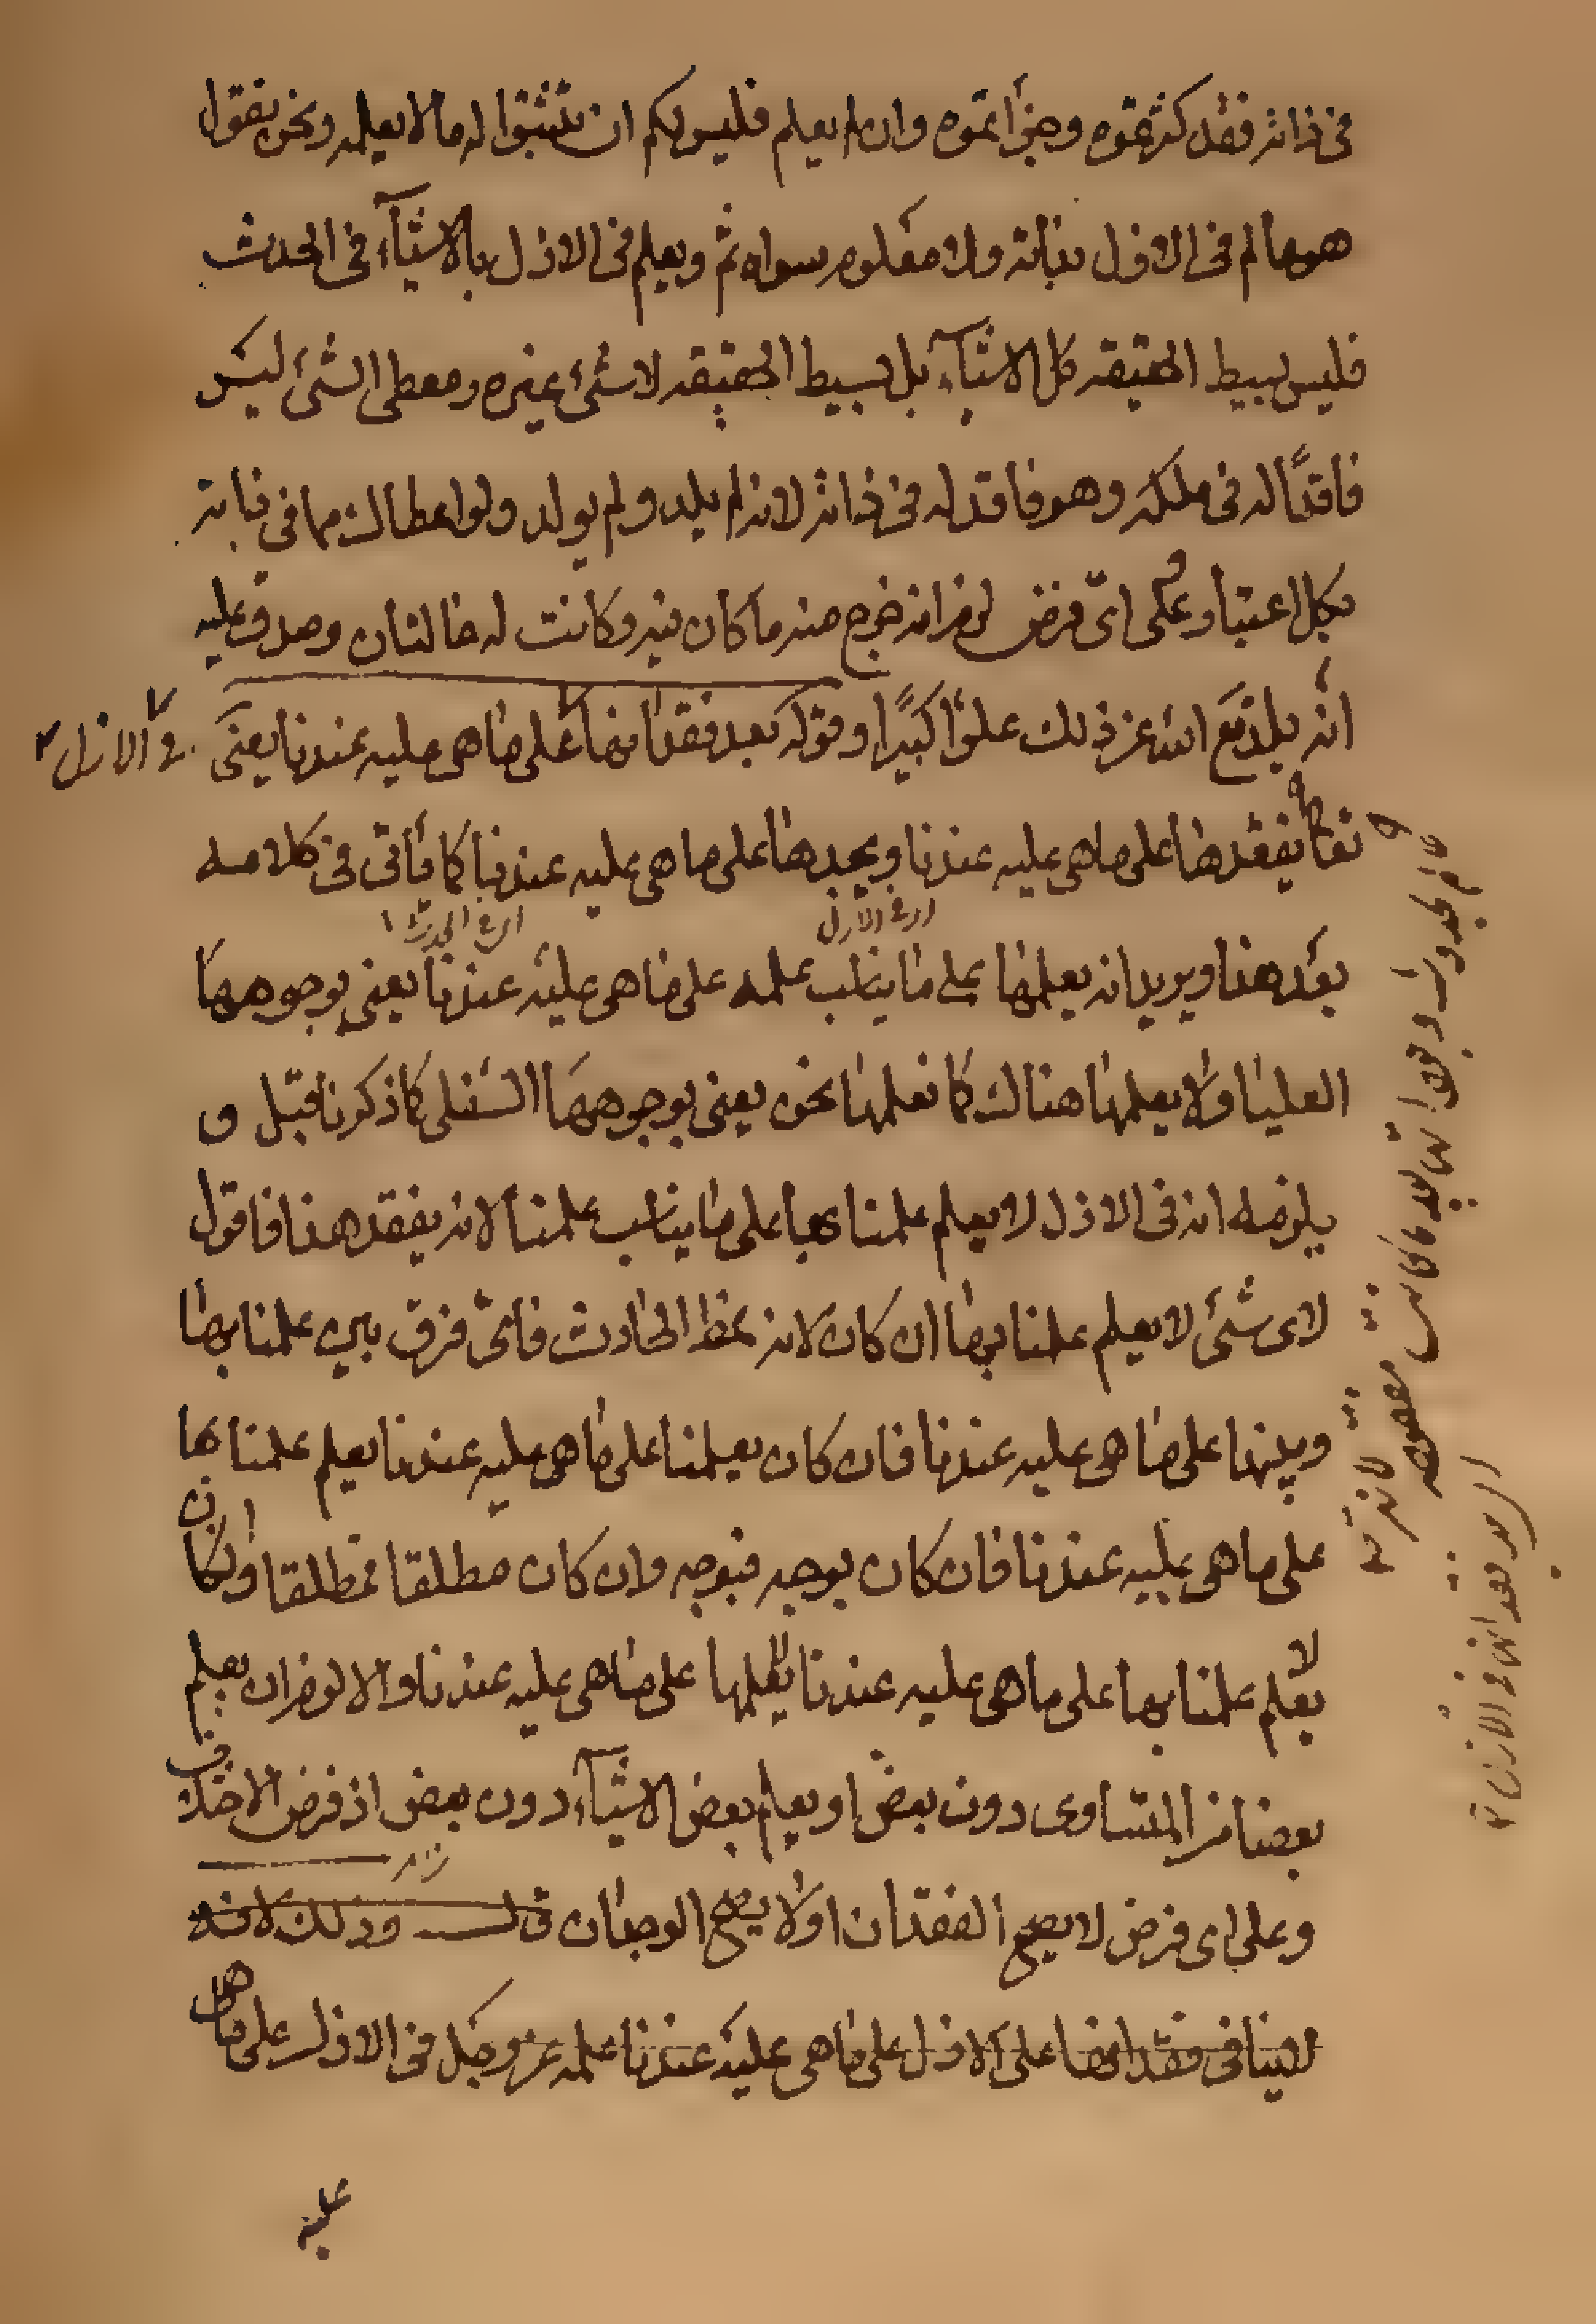 فى ذاته فقد كثرتموه وجزأتموه وان لم يعلم فليس لكم ان تثبتوا له ما لا يعلمه ونحن نقول
هو عالم فى الازل بذاته ولا معلوم سواه ثم ويعلم فى الازل بالاشيآء فى الحدث
فليس بسيط الحقيقه كل الاشيآء بل بسيط الحقيقه لا شئ غيره ومعطى الشئ ليس
فاقدًا له فى ملكه وهو فاقد له فى ذاته لانه لم يلد ولم يولد ولو اعطاك مما فى ذاته
بكل اعتبار وعلى اىّ فرض لزم انه خرج منه ما كان فيه وكانت له حالتان وصدق عليه
انّه يلد تع الله عن ذلك علوّا كبيرًا وقوله بعد فقدانها على ما هى عليه عندنا يعنى فى الازل
انه تعالى يفقدها على ما هى عليه عندنا ويجدها على ما هى عليه عندنا كما يأتى فى كلامه
اى فى الازل اى فى الحدث
بعد هذا ويريد انه يعلمها على ما يناسب علمه على ما هى عليه عندنا يعنى بوجوهها
العليا ولا يعلمها هناك كما نعلمها نحن يعنى بوجوهها السفلى كما ذكرنا قبل و
يلزمه انه فى الازل لا يعلم علمنا بها على ما يناسب علمنا لانه يفقد هذا فاقول
لاى شئ لا يعلم علمنا بها ان كان لانه نمط الحادث فاىّ فرق بين علمنا بها
وبينها على ما هى عليه عندنا فان كان يعلمها على ما هى عليه عندنا يعلم علمنا بها
على ما هى عليه عندنا فان كان بوجه فبوجه وان كان مطلقا فمطلقا وان كان
لا يعلم علمنا بها على ما هى عليه عندنا لا يعلمها على ما هى عليه عندنا والا لزم ان يعلم
بعضا من المتساوى دون بعض او يعلم بعض الاشيآء دون بعض اذ فرض الاختلاف
وعلى اى فرض لا يصح الفقدان او لا يصح الوجدان قال وذلك لانه
لا ينافى فقدانها على الازل على ما هى عليه عندنا علمه عز وجل فى الازل على ما هى
عليه